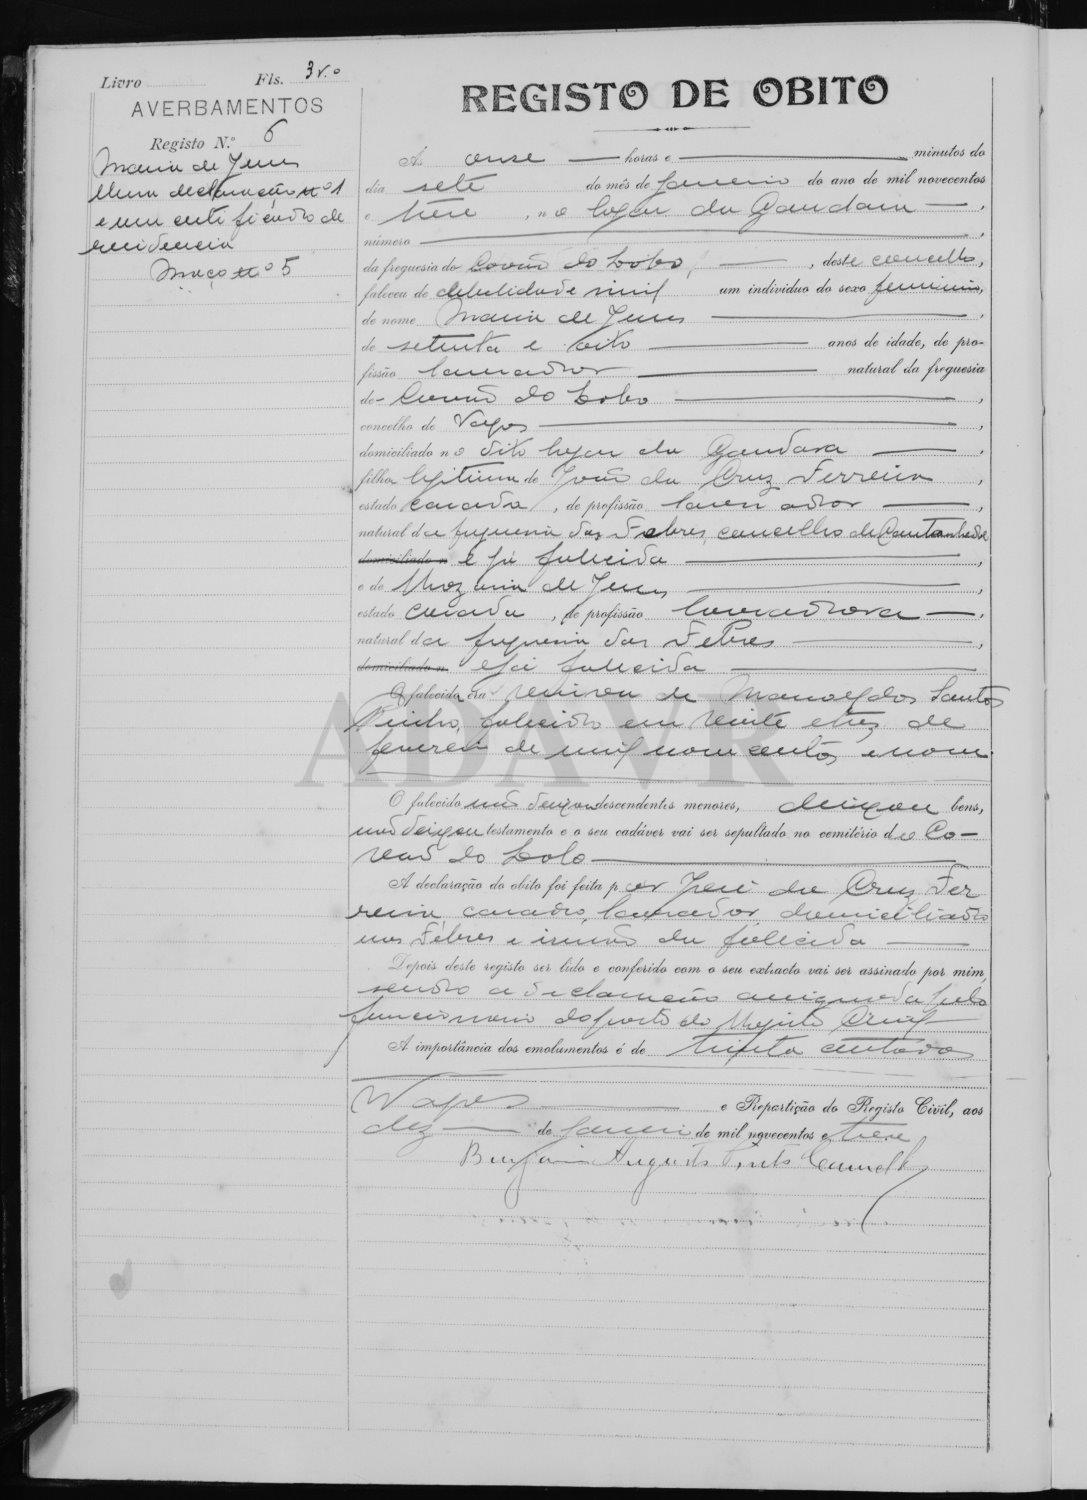 Livro Fls. 3 v.º
AVERBAMENTOS
Registo N.º 6
Maria de Jesus
Uma declaração nº 1
e um certificado de
residencia
Maço nº 5
REGISTO DE OBITO
A's onse — horas e — minutos do
dia sete do mês de Janeiro do ano de mil novecentos
e treze, no logar da Gandara —,
número —
da freguesia de Covão do Lobo, —, deste concelho,
faleceu de debelidade senil um individuo do sexo feminino,
de nome Maria de Jesus —,
de setenta e oito — anos de idade, de pro-
fissão lavrador — natural da freguesia
de Covão do Lobo —,
concelho de Vagos —,
domiciliado no dito logar da Gandara —,
filha legitima de João da Cruz Ferreira,
estado casado, de profissão lavrador —,
natural da freguesia das Febres, concelho de Cantanhede
domiciliado n e já falecido —,
e de Mozaria de Jesus —,
estado casada, de profissão lavradora —,
natural da freguesia das Febres —,
domiciliada n e já falecida —
O falecida era viuva de Manoel dos Santos
Pinho, falecido em vinte e tres de
fevereiro de mil nove centos e nove.
O falecido não deixou descendentes menores, deixou bens,
não deixou testamento e o seu cadáver vai ser sepultado no cemitério de Co-
vão do Lobo —
A declaração do obito foi feita por José da Cruz Fer
reira, casado, lavrador, domiciliado
nas Febres e irmão da falecida —
Depois deste registo ser lido e conferido com o seu extracto vai ser assinado por mim,
sendo a declaração assignada pelo
funcionario do posto do Registo Civil
A importância dos emolumentos é de trinta centavos
Vagos — e Repartição do Registo Civil, aos
dez — de Janeiro de mil novecentos e treze
Benjamim Augusto
ADAVR